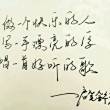 做一个快乐的人
写一手漂亮的字
唱一首好听的歌